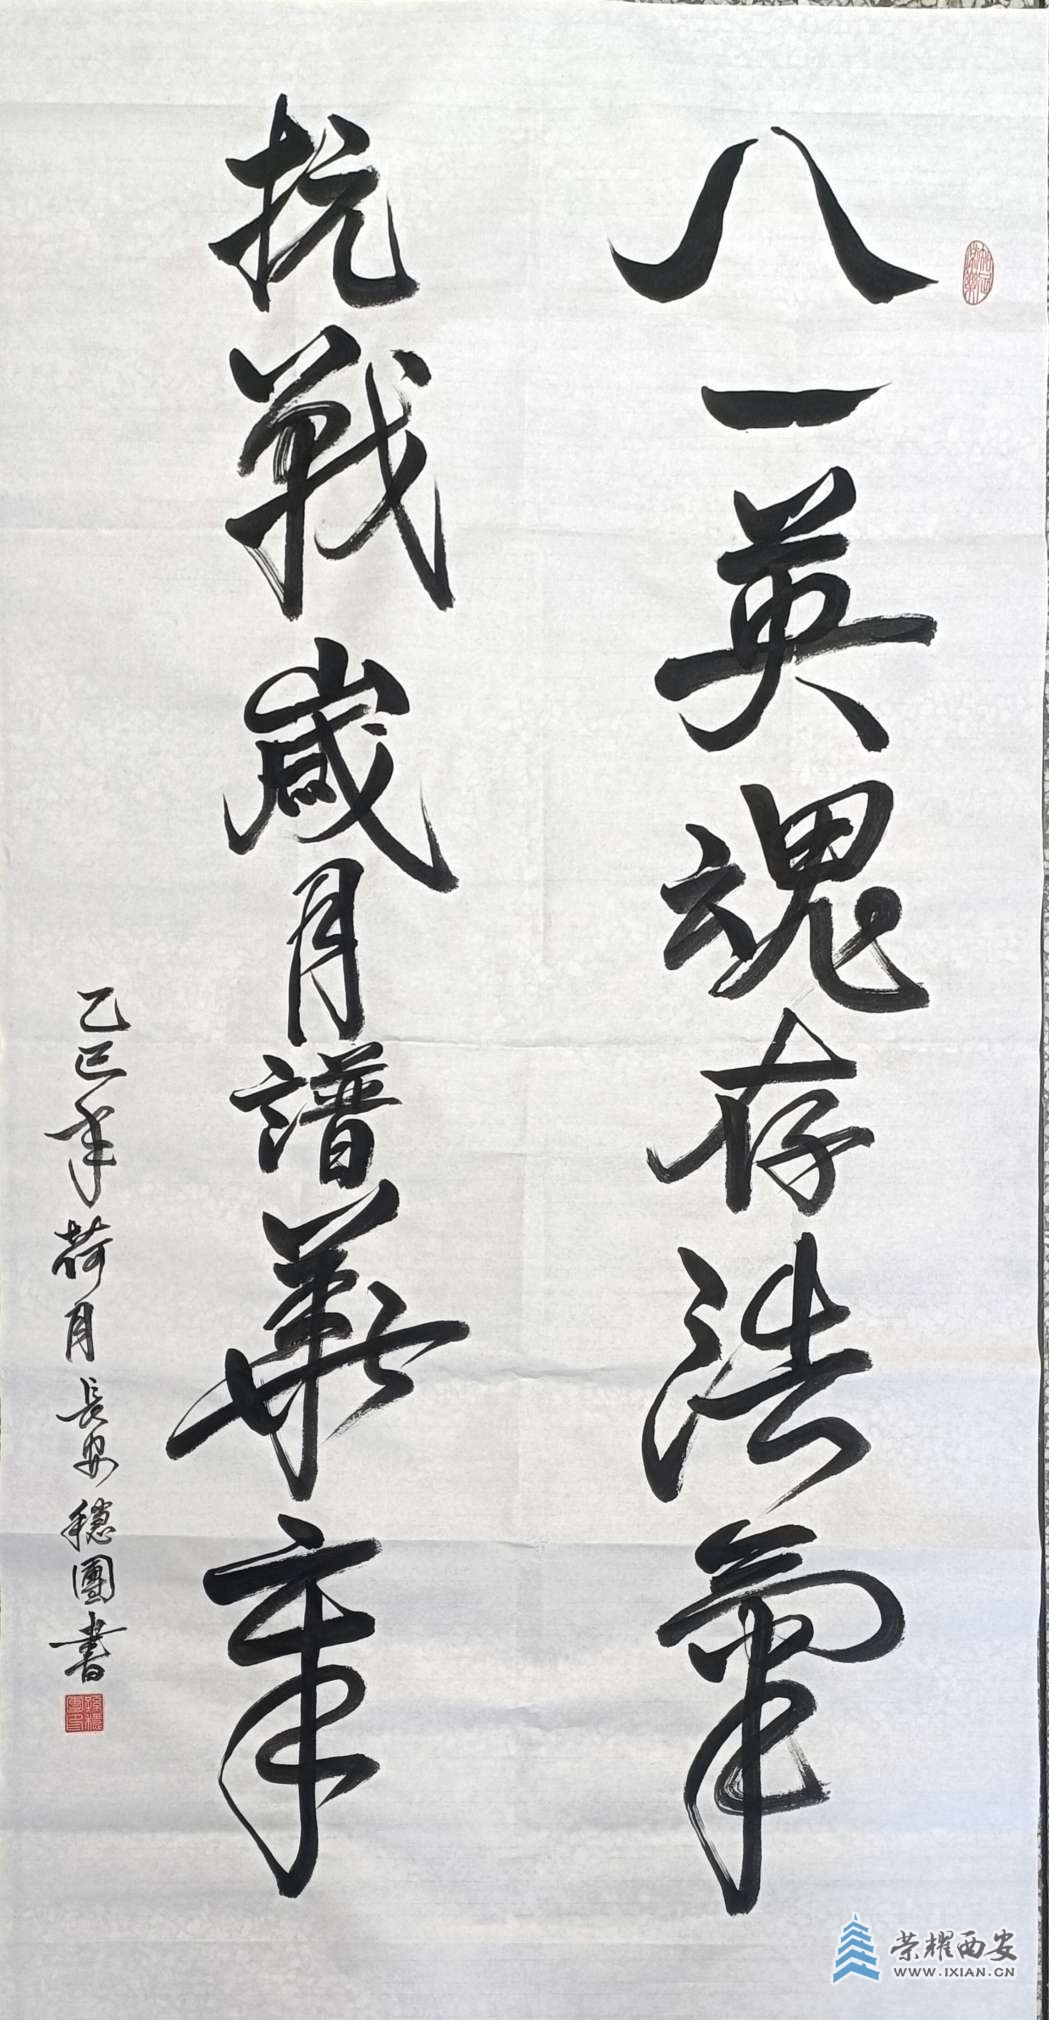 八一英魂存浩氣
抗戰歲月譜華章
乙巳年荷月長安穩團書
荣耀西安
WWW.IXIAN.CN